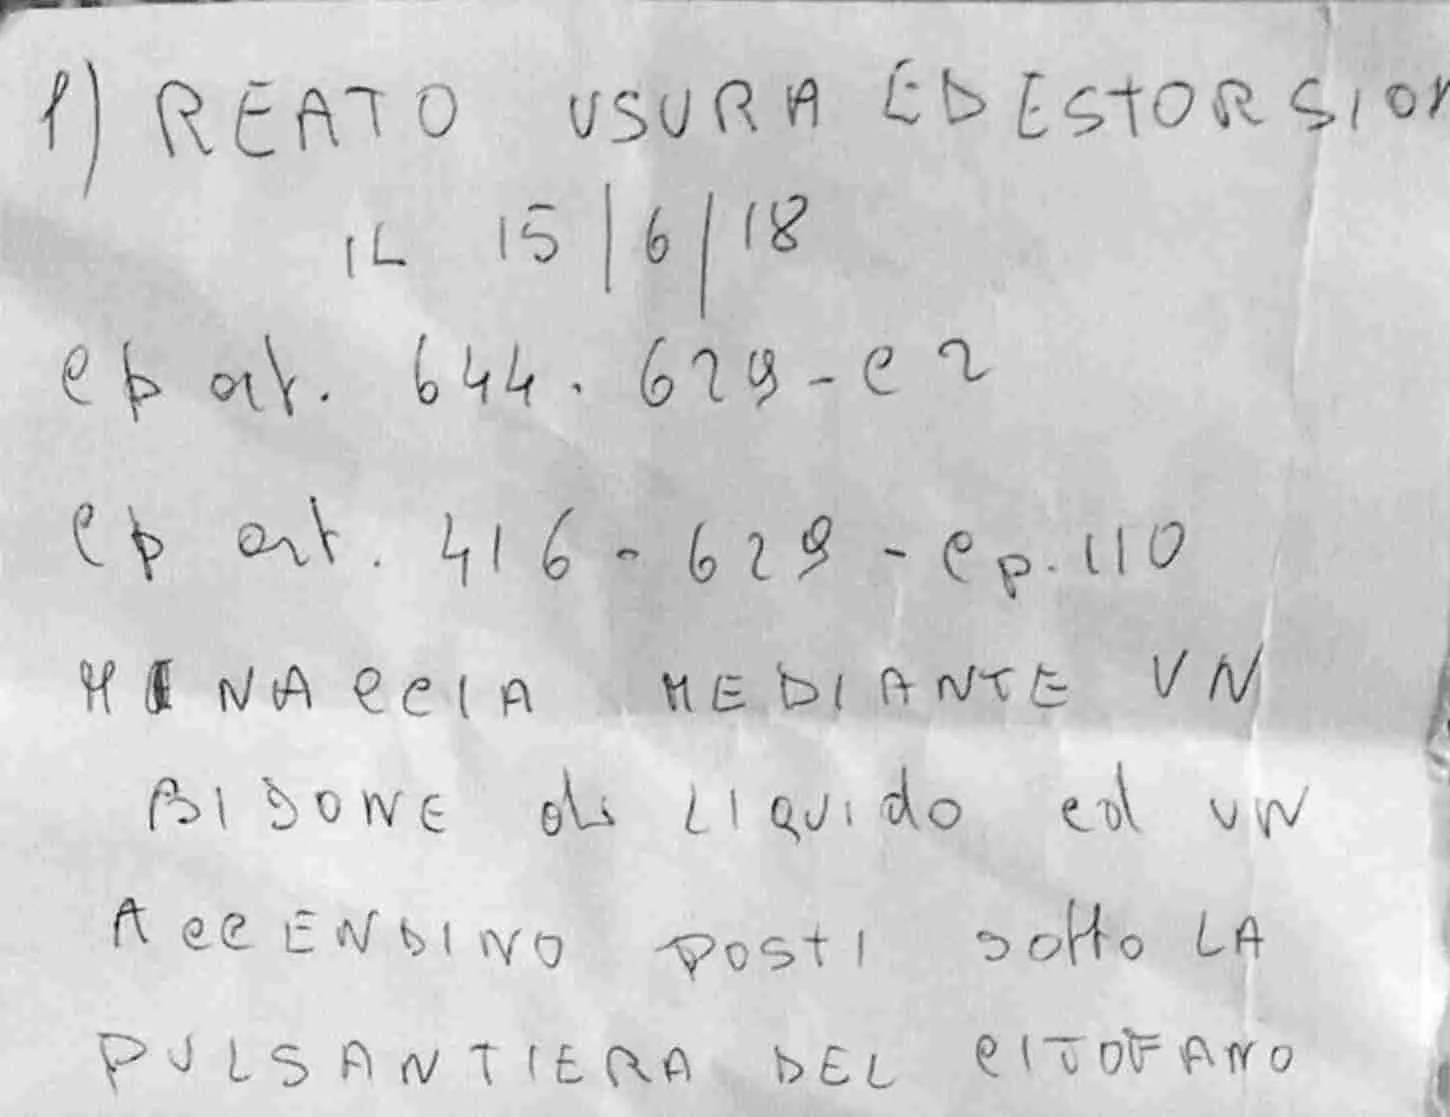 1) REATO USURA ED ESTORSION
IL 15/6/18
cp art. 644. 629 - c 2
cp art. 416 - 629 - cp. 110
MINACCIA MEDIANTE UN
BIDONE di LIQUIdo ed UN
ACCENDINO POSTI sotto LA
PULSANTIERA DEL CITOFANO